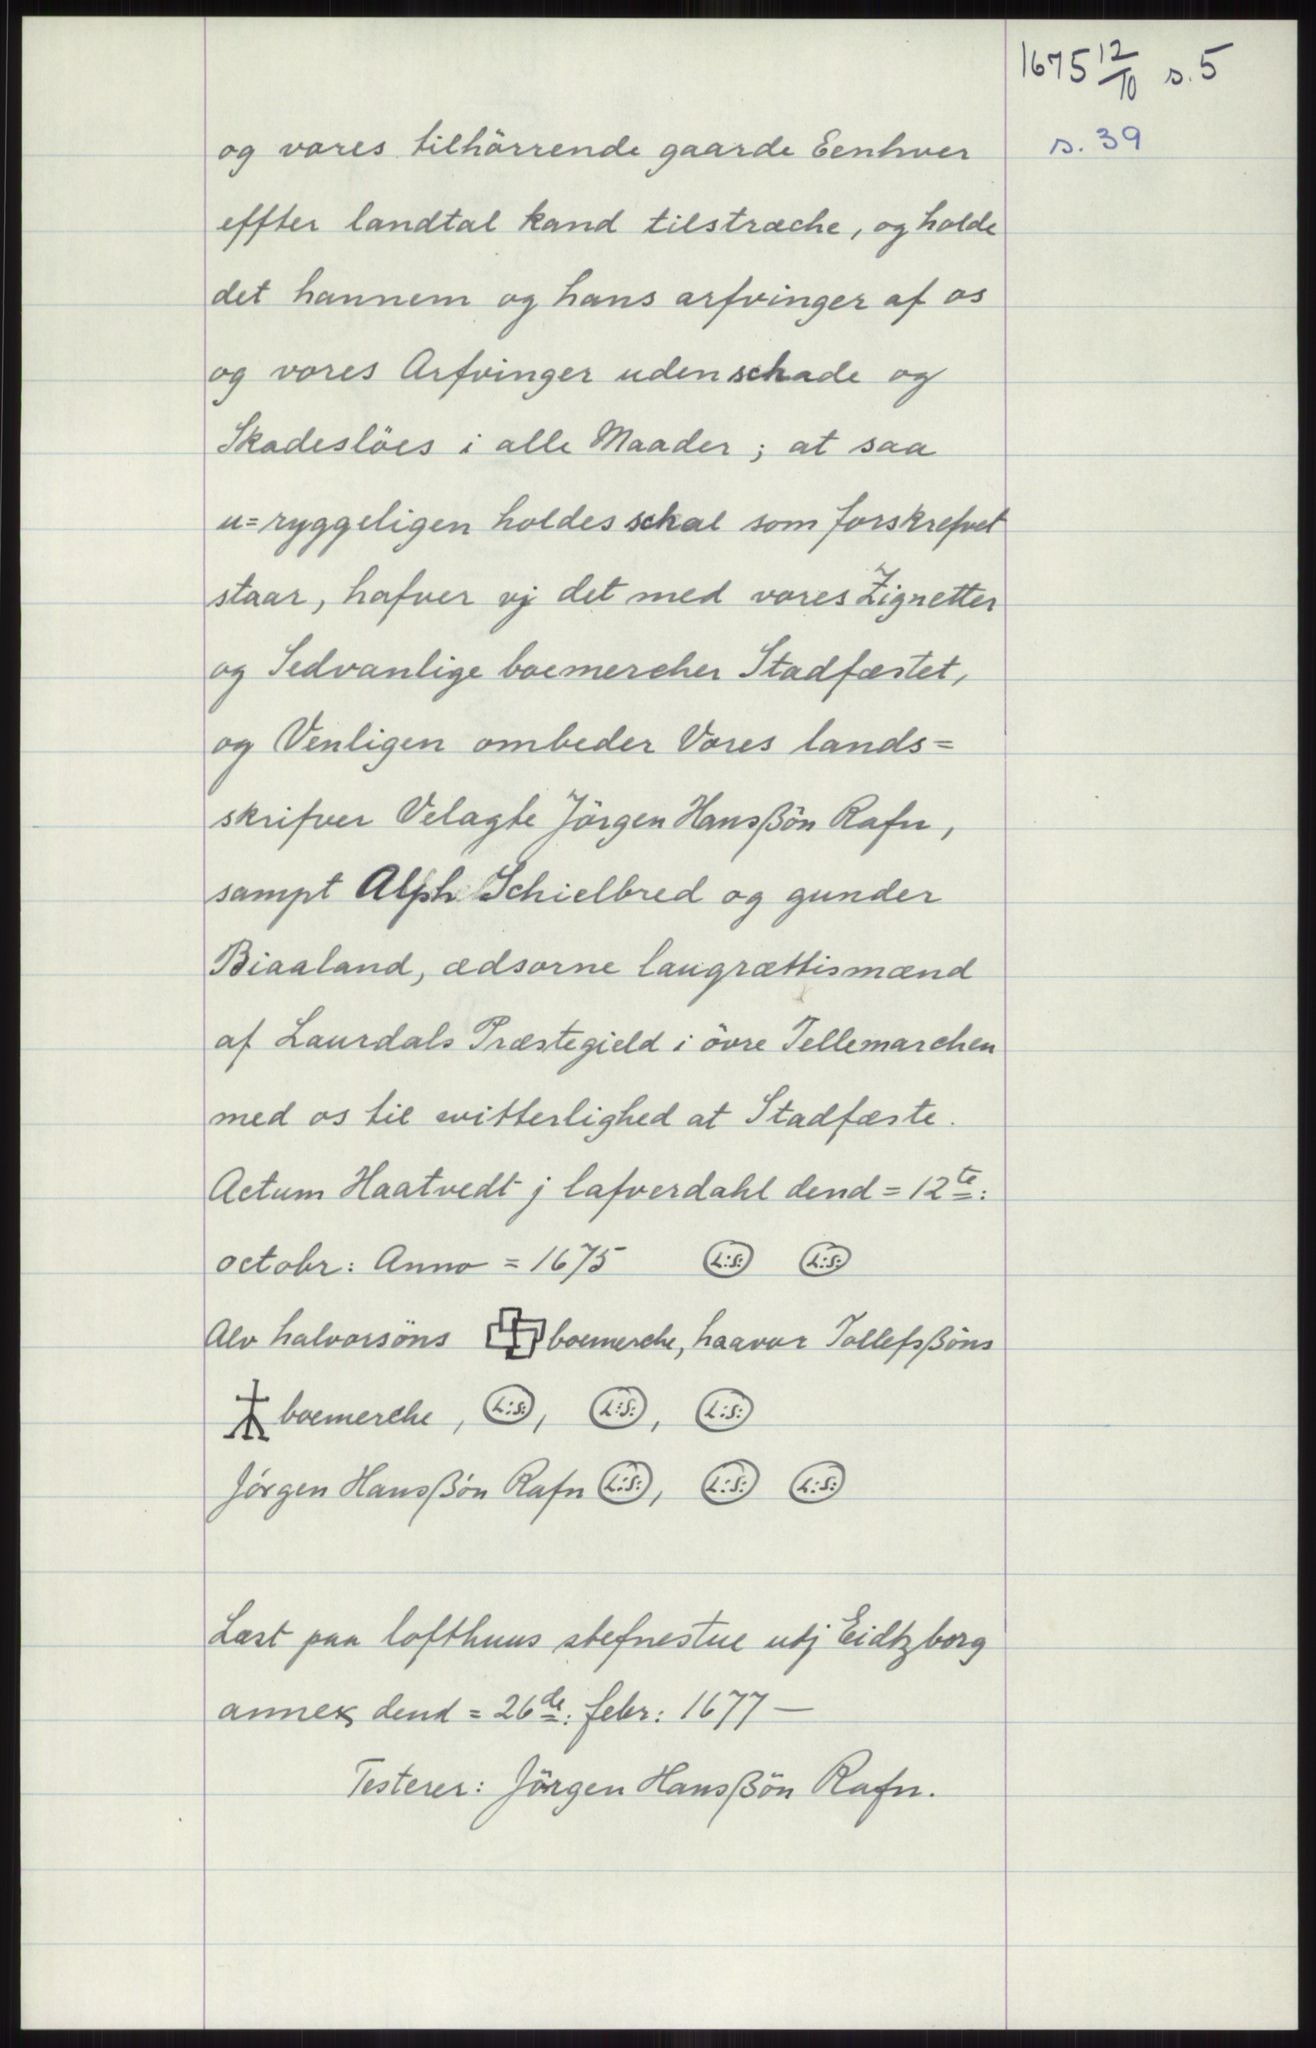 1675 12/10 s. 5
s. 39
og vores tilhörrende gaarde Eenhver
effter landtal kand tilstræche, og holde
det hannem og hans arfvinger af os
og vores Arfvinger uden schade og
Skadeslöes i alle Maader; at saa
u=ryggeligen holdes schal som forskrefvet
staar, hafver vj det med vores Zignetter
og Sedvanlige boemercher Stadfæstet,
og Venligen ombeder Vores lands=
skrifver Velagte Jörgen Hansßön Rafn,
sampt Alph Schielbred og gunder
Biaaland, ædsorne laugrættismænd
af Laurdals Præstegield i övre Tellemarchen
med os til witterlighed at Stadfæste.
Actum Haatvedt j lafverdahl dend = 12te:
octobr: Anno = 1675 L:S: L:S:
Alv halvorsöns boemerche, haavor Tollefsßöns
boemerche, L:S:, L:S:, L:S:
Jörgen Hansßön Rafn L:S:, L:S: L:S:
Læst paa lofthuus stefnestue utj Eidtzborg
annex dend = 26de: febr: 1677 —
Testerer: Jörgen Hansßön Rafn.